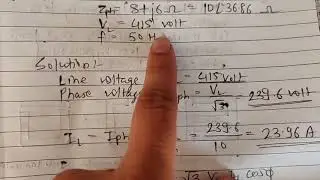 Zph = 8+j6 Ω = 10∠36.86 Ω
VL = 415 volt
f = 50 H
Solution:
Line voltage = 415 volt
Phase voltage ph = VL/√3 = 239.6 volt
IL = Iph = 239.6/10 = 23.96 A
√3 VL IL cosφ